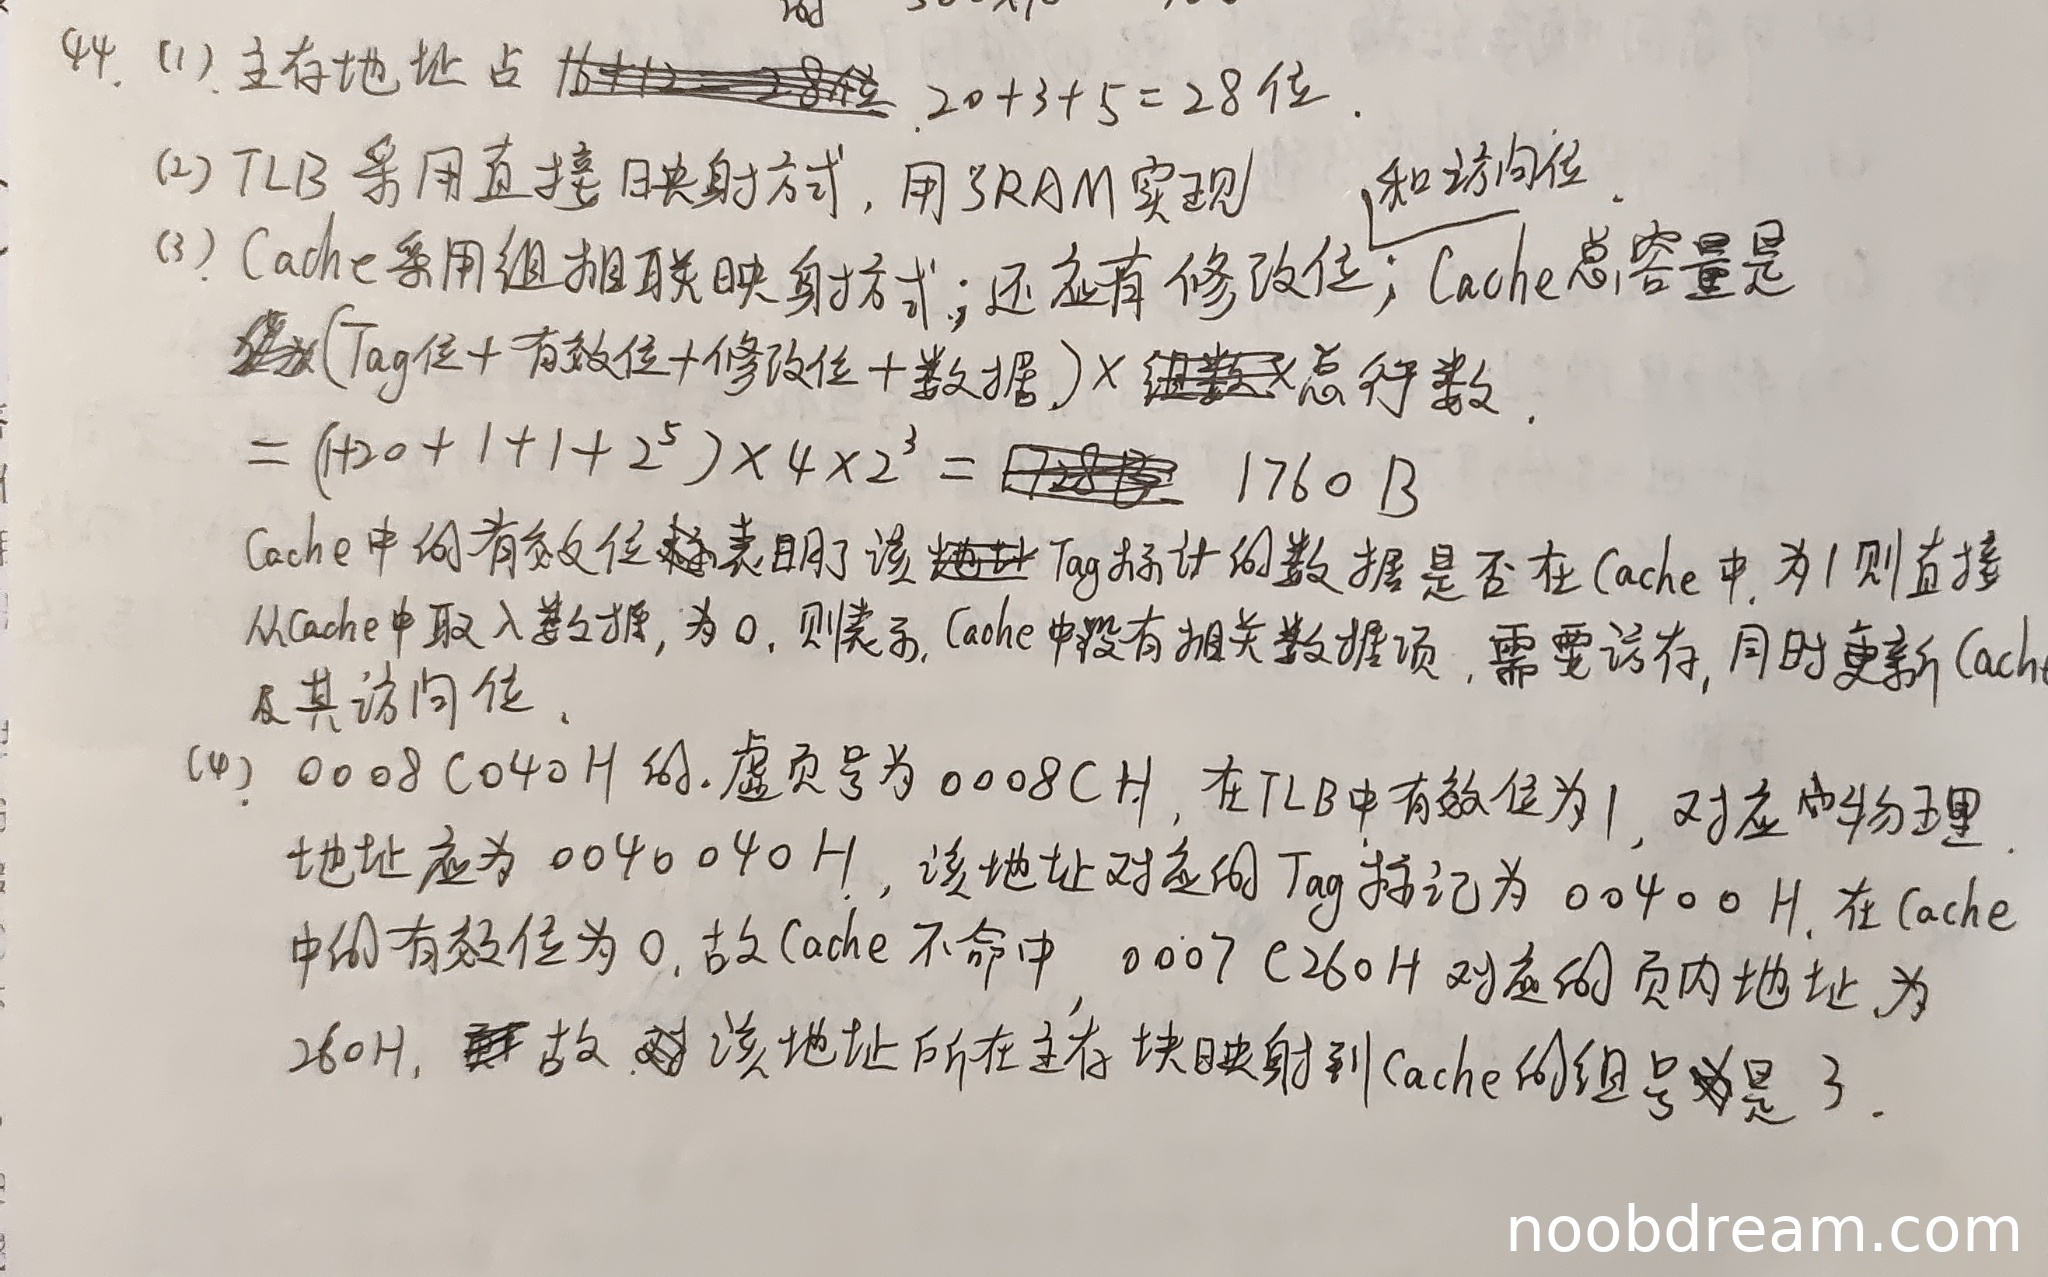 44. (1). 主存地址占 20+3+5=28位.
(2) TLB采用直接映射方式, 用SRAM实现
和访问位.
(3). Cache采用组相联映射方式; 还应有修改位; Cache总容量是
(Tag位+有效位+修改位+数据)×总行数.
= (1+20+1+1+2^5)×4×2^3 = 1760 B
Cache中的有效位表明了该Tag标计的数据是否在Cache中, 为1则直接
从Cache中取入数据, 为0, 则表示, Cache中没有相关数据项, 需要访存, 同时更新Cache
及其访问位.
(4). 0008C040H的虚页号为0008CH, 在TLB中有效位为1, 对应物理
地址应为0040040H, 该地址对应的Tag标记为00400H, 在Cache
中的有效位为0, 故Cache不命中, 0007C260H对应的页内地址为
260H, 故该地址所在主存块映射到Cache的组号是3.
noobdream.com